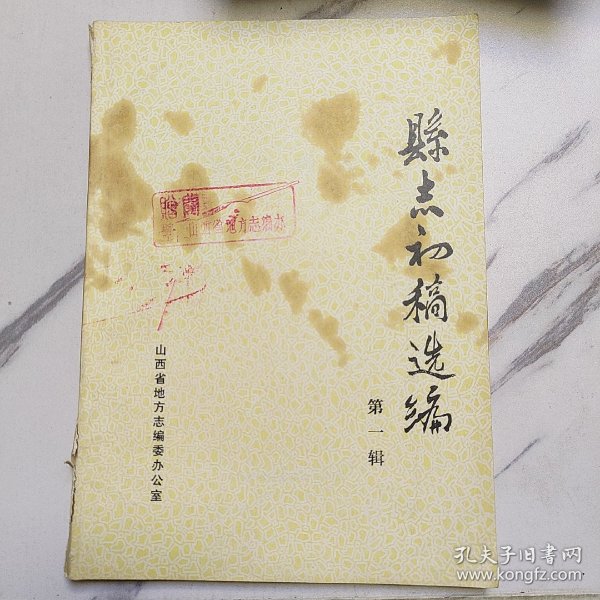 縣志初稿选编
第一辑
山西省地方志编委办公室
山西省地方志编办
孔夫子旧书网
www.kongfz.com